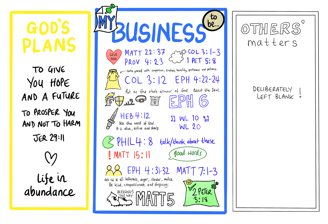 GOD'S
PLANS
TO GIVE
YOU HOPE
AND A FUTURE
TO PROSPER YOU
AND NOT TO HARM
JER 29:11
life in
abundance
MY
BUSINESS
to be
MATT 22:37
PROV 4:23
COL 3:1-3
1 PET 5:8
COL 3:12
EPH 4:22-24
EPH 6
HEB 4:12
WL 10
WL 20
PHIL 4:8
talk/think about these
! MATT 15:11
good words
EPH 4:31-32
MATT 7:1-3
MATT 5
2 PETER
3:18
OTHERS'
matters
DELIBERATELY
LEFT BLANK !